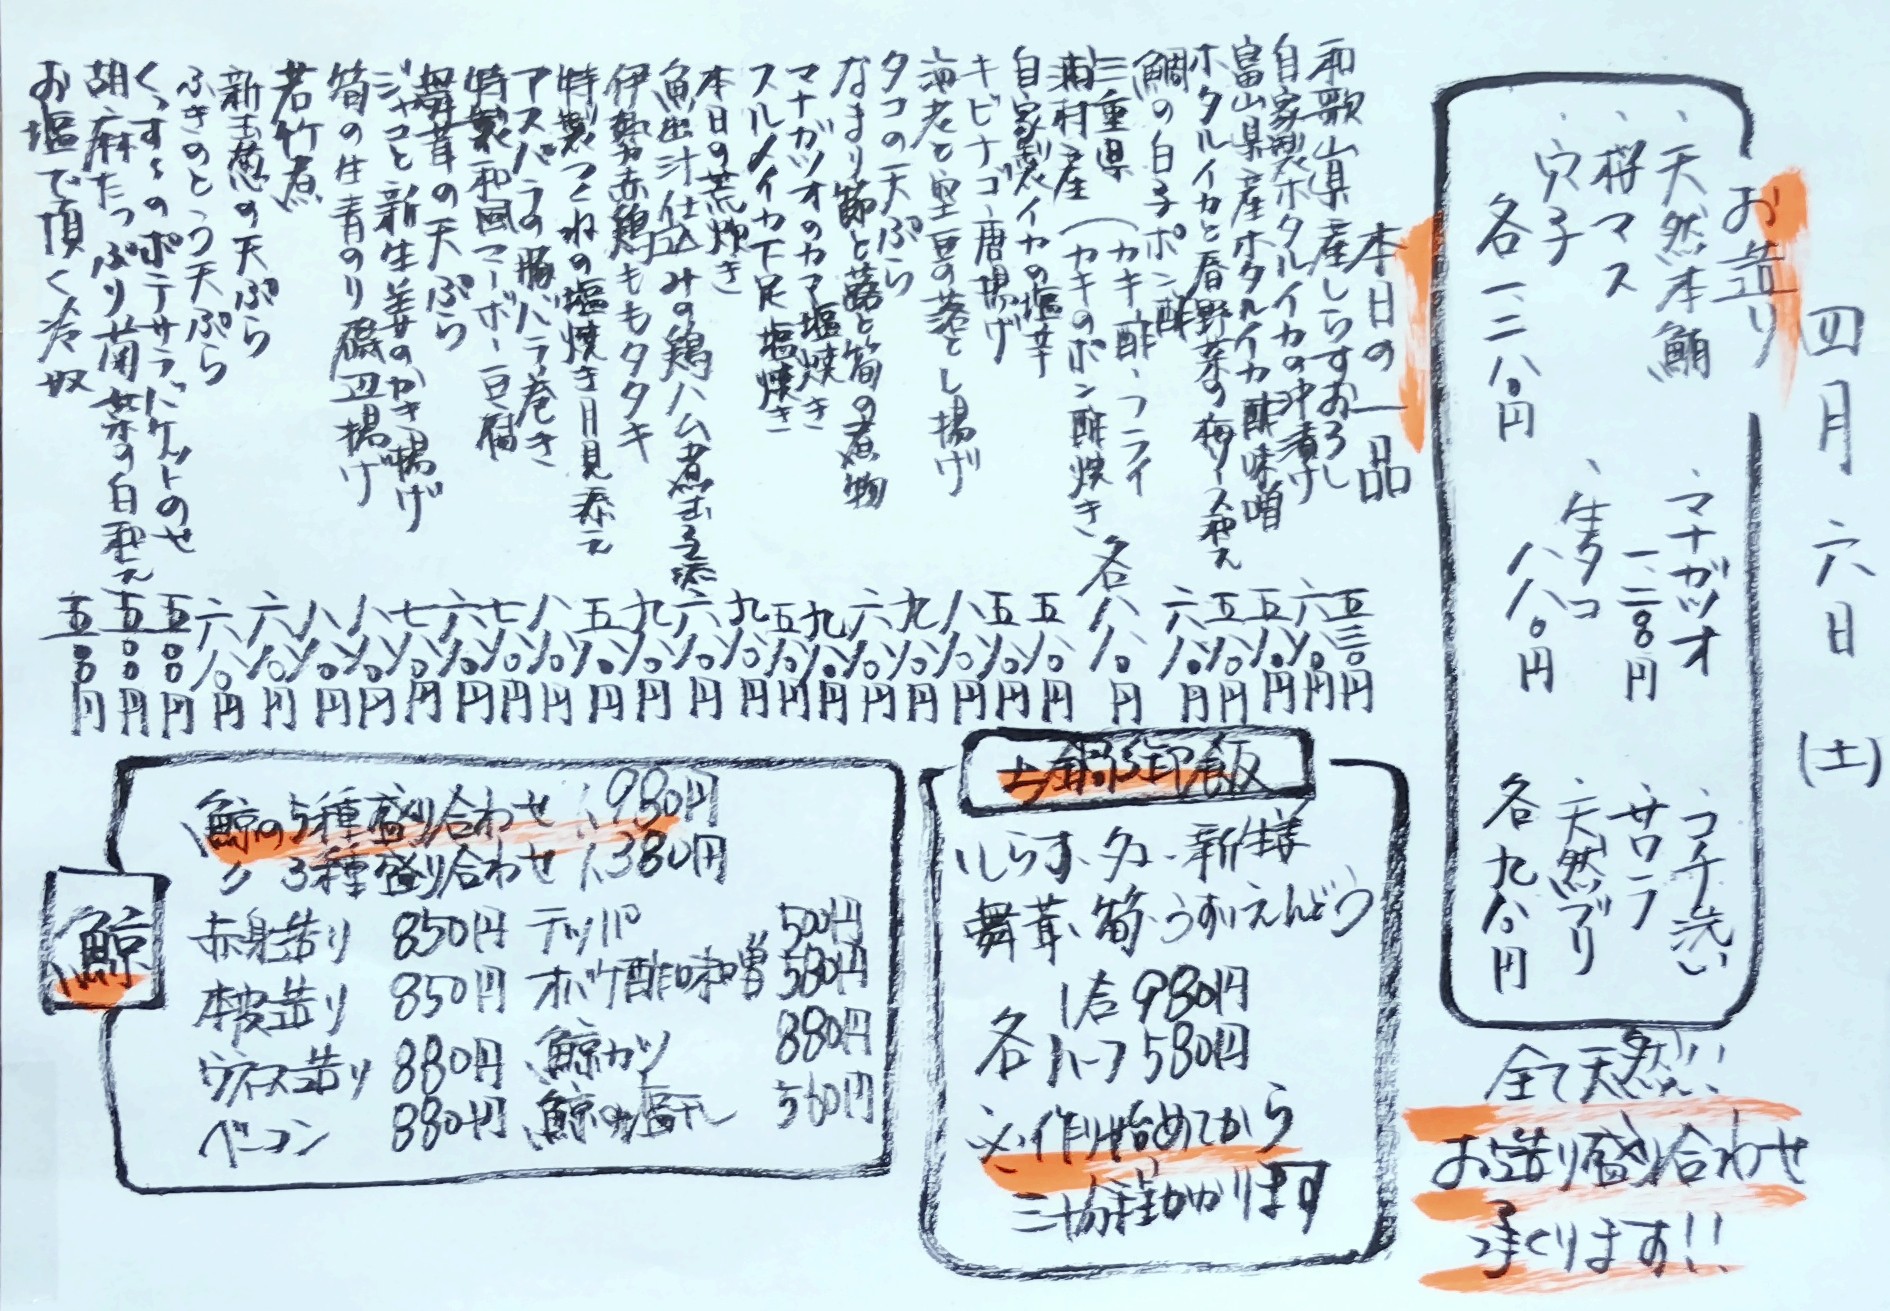 四月六日(土)
お造り
、天然本鮪
、桜マス
、穴子
各一、二八〇円
、マナガツオ
一、二八〇円
、生タコ
八八〇円
、コチ洗い
、サワラ
、天然ブリ
各九八〇円
全て天然!!
お造り盛り合わせ
承ります!!
本日の一品
和歌山県産しらすおろし 五三〇円
自家製ホタルイカの沖漬け 六八〇円
富山県産ホタルイカ酢味噌 五八〇円
ホタルイカと春野菜の梅ソース和え 五八〇円
鯛の白子ポン酢 六八〇円
三重県
浦村産
(カキ酢・フライ
(カキのポン酢焼き
各八八〇円
自家製イカの塩辛 五八〇円
キビナゴ唐揚げ 五八〇円
海老と空豆の落とし揚げ 八八〇円
タコの天ぷら 九八〇円
なまり節と蕗と筍の煮物 六八〇円
マナガツオのカマ塩焼き 九八〇円
スルメイカ下足塩焼き 五八〇円
本日の荒炊き 九八〇円
魚出汁仕込みの鶏ハム煮玉子添え 六八〇円
伊勢赤鶏ももタタキ 九八〇円
特製つくねの塩焼き月見添え 五八〇円
アスパラの豚バラ巻き 八八〇円
特製和風マーボー豆腐 七八〇円
舞茸の天ぷら 六八〇円
ジャコと新生姜のかき揚げ 七八〇円
筍の生青のり磯辺揚げ 八八〇円
若竹煮 八八〇円
新玉葱の天ぷら 六八〇円
ふきのとう天ぷら 六八〇円
くっすんのポテサラバゲットのせ 五〇〇円
胡麻たっぷり菊菜の白和え 五〇〇円
お塩で頂く冷奴 五〇〇円
土鍋御飯
しらす、タコ、新生姜
舞茸、筍、うすいえんどう
各 1合 980円
ハーフ 580円
※作り始めてから
三十分程かかります
鯨
鯨の5種盛り合わせ 1,980円
〃 3種盛り合わせ 1,380円
赤身造り 850円 テッパ 500円
本皮造り 850円 オバケ酢味噌 580円
ウネス造り 880円 鯨カツ 880円
ベーコン 880円 鯨の塩干し 560円